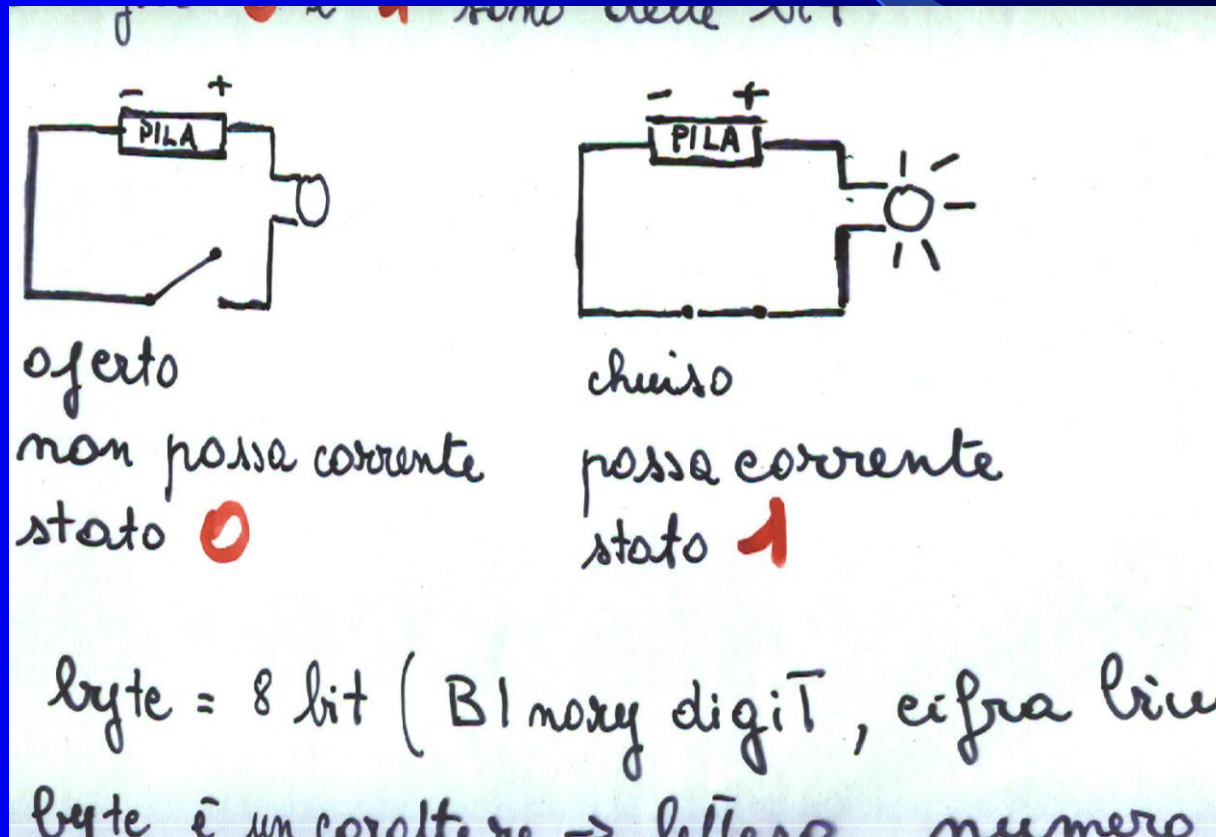 0 e 1 sono dette bit
- +
PILA
- +
PILA
aperto
non passa corrente
stato 0
chiuso
passa corrente
stato 1
byte = 8 bit (BInary digiT, cifra
byte è un carattere → lettera numero